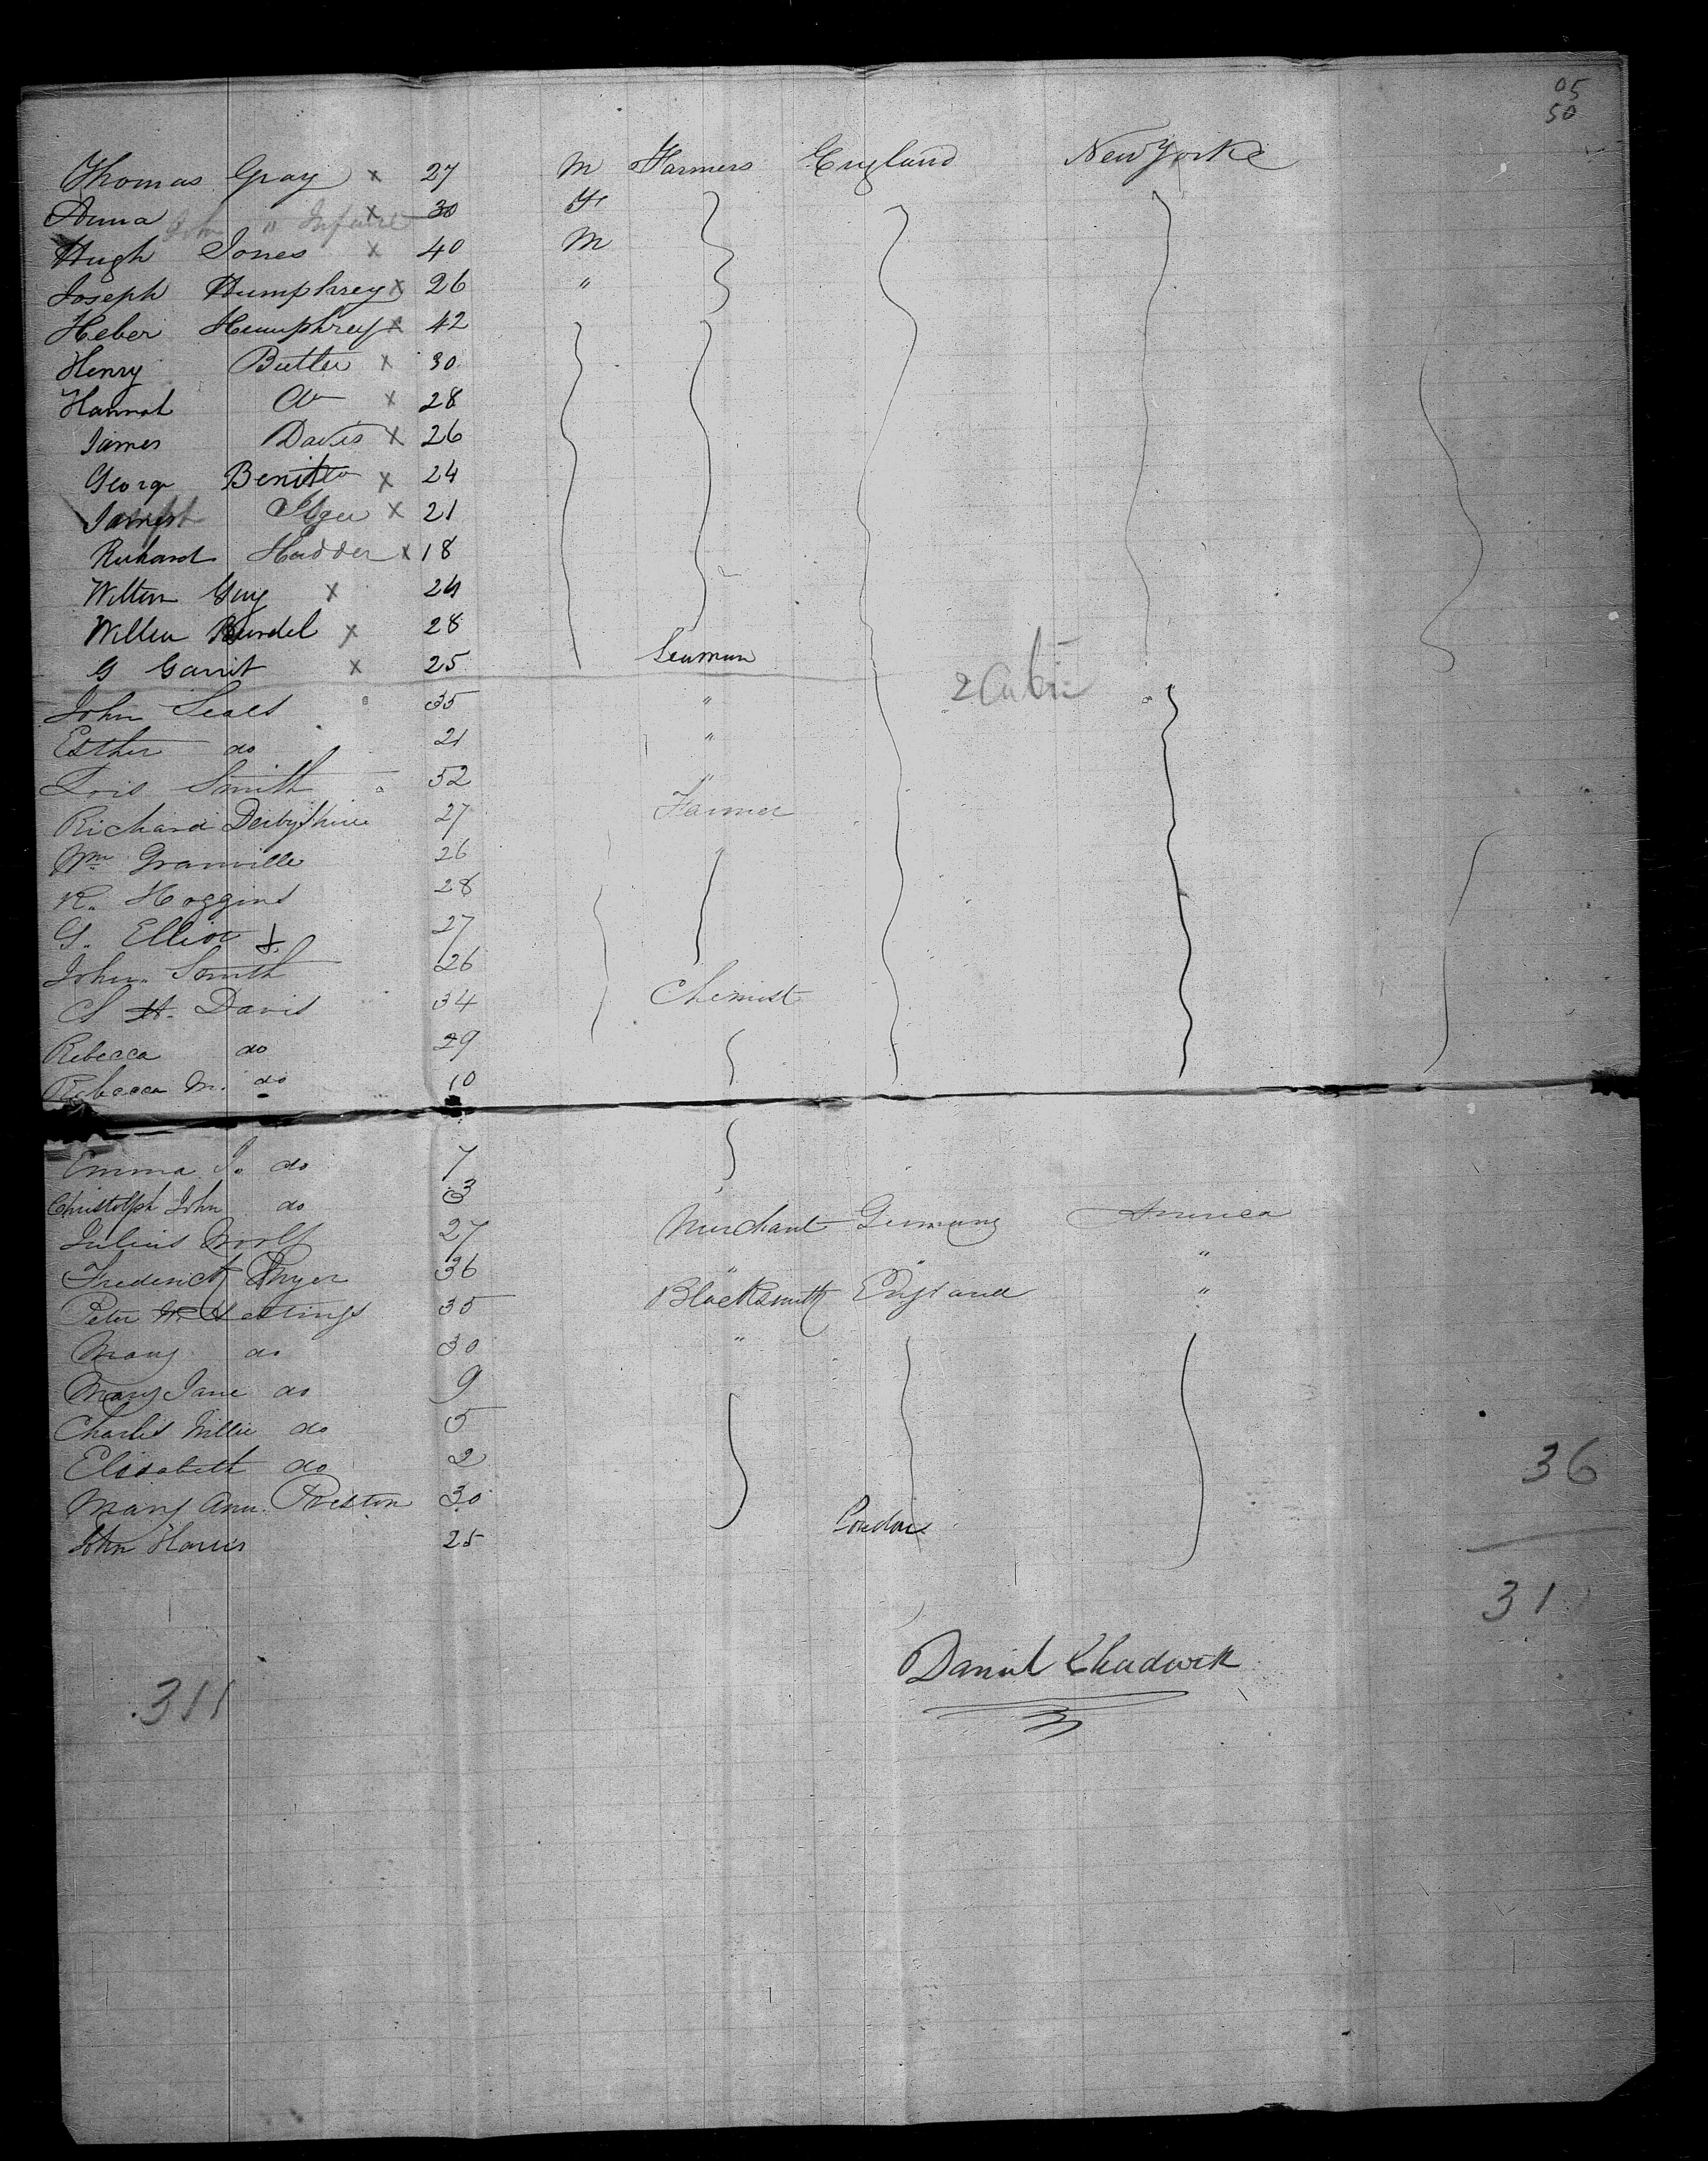 05
50
Thomas Gray x 27 M Farmers England New Yorke
Anna x 30 F
John " Infant
Hugh Jones x 40 M
Joseph Humphrey x 26 "
Heber Humphrey x 42
Henry Butler x 30
Hannah do x 28
James Davis x 26
George x 24
x 21
Richard Hadder x 18
x 24
x 28
G Garrit x 25 Seaman
2 Cabin
John Seals 35 "
Esther do 21 "
Lois Smith 52 "
Richard Derbyshire 27 Farmer
Wm Granville 26 "
R. Hoggins 28
G. Elliot x 27
John Smith 26
C H. Davis 34 Chemist
Rebecca do 29
Rebecca M. do 10
Emma J. do 7
Christolph John do 3
Julius Woolf 27 Merchant Germany America
Frederick 36 " " "
Peter Hastings 35 Blacksmith England "
Mary do 30 "
Mary Jane do 9
Charles Willie do 5
Elisabeth do 2
Mary Ann Preston 30
John Harris 25 London
36
31
Daniel Chadwick
311